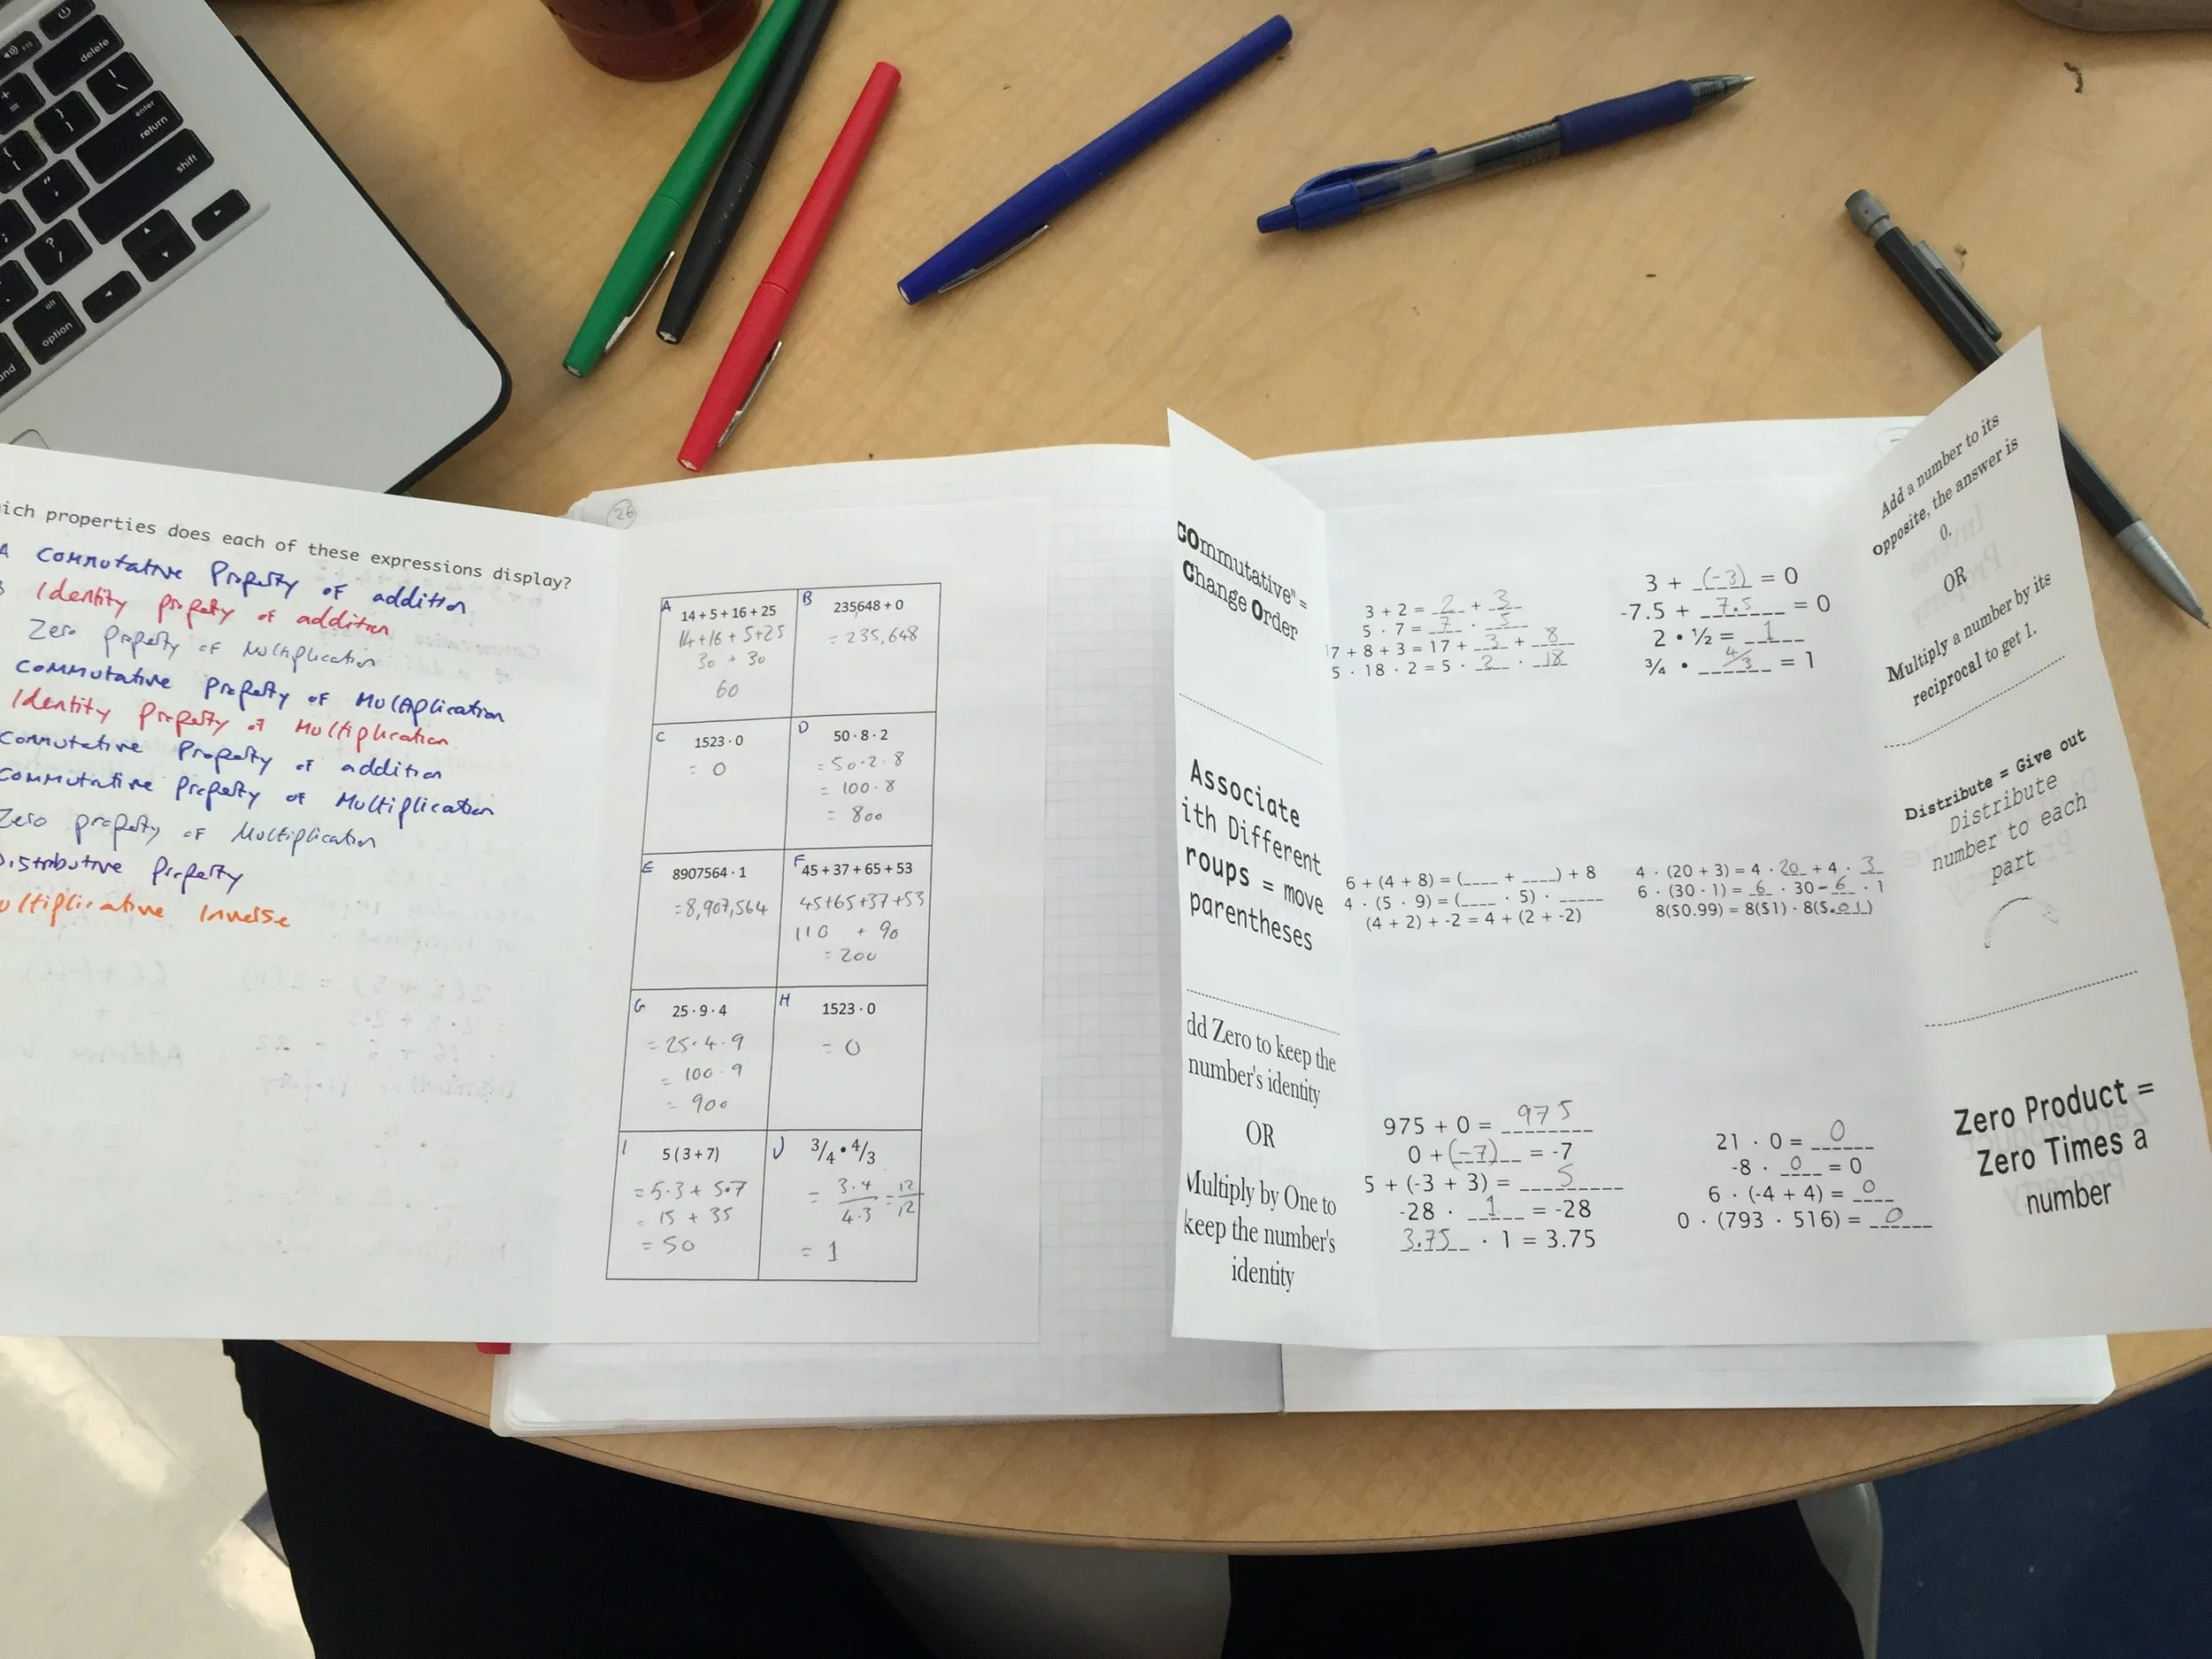 delete
enter
return
shift
option
ich properties does each of these expressions display?
A Commutative Property of addition
Identity property of addition
Zero property of Multiplication
Commutative property of Multiplication
Identity property of Multiplication
Commutative Property of addition
Commutative Property of Multiplication
Zero property of Multiplication
Distributive Property
ultiplicative Inverse
26
A 14 + 5 + 16 + 25
14+16 + 5+25
30 + 30
60
B 235648 + 0
= 235,648
C 1523 · 0
= 0
D 50 · 8 · 2
= 50·2·8
= 100·8
= 800
E 8907564 · 1
= 8,907,564
F 45 + 37 + 65 + 53
45+65+37+53
110 + 90
= 200
G 25 · 9 · 4
= 25·4·9
= 100·9
= 900
H 1523 · 0
= 0
I 5 (3 + 7)
= 5·3 + 5·7
= 15 + 35
= 50
J 3/4 • 4/3
= 3·4/4·3 = 12/12
= 1
COmmutative" =
Change Order
3 + 2 = 2 + 3
5 · 7 = 7 · 5
7 + 8 + 3 = 17 + 3 + 8
5 · 18 · 2 = 5 · 2 · 18
3 + (-3) = 0
-7.5 + 7.5 = 0
2 • ½ = 1
¾ • 4/3 = 1
Add a number to its
opposite, the answer is
0.
OR
Multiply a number by its
reciprocal to get 1.
Associate
ith Different
roups = move
parentheses
6 + (4 + 8) = (____ + ____) + 8
4 · (5 · 9) = (____ · 5) · _____
(4 + 2) + -2 = 4 + (2 + -2)
4 · (20 + 3) = 4 · 20 + 4 · 3
6 · (30 - 1) = 6 · 30 - 6 · 1
8($0.99) = 8($1) - 8($.01)
Distribute = Give out
Distribute
number to each
part
dd Zero to keep the
number's identity
OR
Multiply by One to
keep the number's
identity
975 + 0 = 975
0 + (-7) = -7
5 + (-3 + 3) = 5
-28 · 1 = -28
3.75 · 1 = 3.75
21 · 0 = 0
-8 · 0 = 0
6 · (-4 + 4) = 0
0 · (793 · 516) = 0
Zero Product =
Zero Times a
number